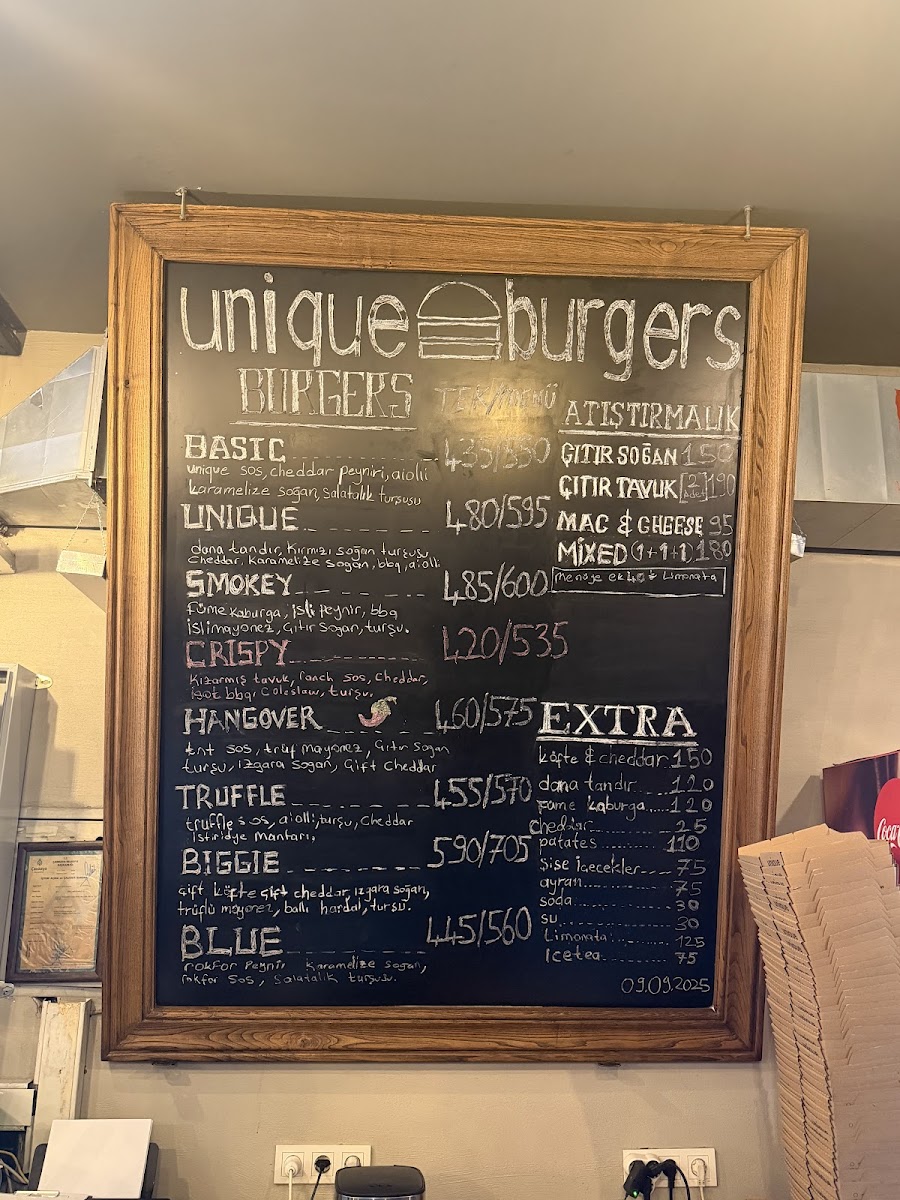 unique burgers
BURGERS TEK/MENÜ
BASIC 435/550
unique sos, cheddar peyniri, aiolli
karamelize soğan, salatalık turşusu
UNIQUE 480/595
dana tandır, kırmızı soğan turşusu,
cheddar, karamelize soğan, bbq, aiolli
SMOKEY 485/600
füme kaburga, isli peynir, bbq
islimayonez, Çıtır soğan, turşu.
CRISPY 420/535
kızarmış tavuk, ranch sos, cheddar,
isot bbq, coleslaw, turşu.
HANGOVER 460/575
tnt sos, trüf mayonez, Çıtır soğan
turşu, ızgara soğan, Çift cheddar
TRUFFLE 455/570
truffle sos, aiolli, turşu, cheddar
istiridye mantarı.
BIGGIE 590/705
Çift köfte çift cheddar, ızgara soğan,
trüflü mayonez, ballı hardal, turşu.
BLUE 445/560
rokfor peynir karamelize soğan,
rokfor sos, salatalık turşusu.
ATIŞTIRMALIK
ÇITIR SOĞAN 150
ÇITIR TAVUK 190
MAC & CHEESE 95
MİXED (1+1+1) 180
menüye ek 40 ₺ Limonata
EXTRA
köfte & cheddar 150
dana tandır 120
füme kaburga 120
cheddar 25
patates 110
şişe içecekler 75
ayran 75
soda 30
su 30
Limonata 125
Icetea 75
09.09.2025